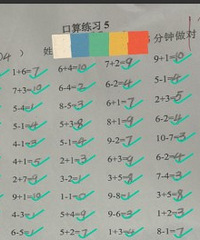 口算练习 5
04 ) 姓 分钟做对
1+6=7 6+4=10 7+2=9 9+1=10
7+3=10 6-2=4 5-1=4
5-4=1 8-5=3 6+1=7 2+3=5
5-1=4 5+3=8 8+1=9 6-2=4
4-1=3 5-1=4 9-2=7 10-7=3
4+1=5 2+1=3 6+3=9 6-2=4
2+7=9 3-2=1 3+5=8 7-4=3
9+1=10 1-1=0 9-8=1 3+5=8
4-3=1 5+4=9 9-6=3 1+2=3
6-5=1 5+2=7 1+3=4 8-1=7